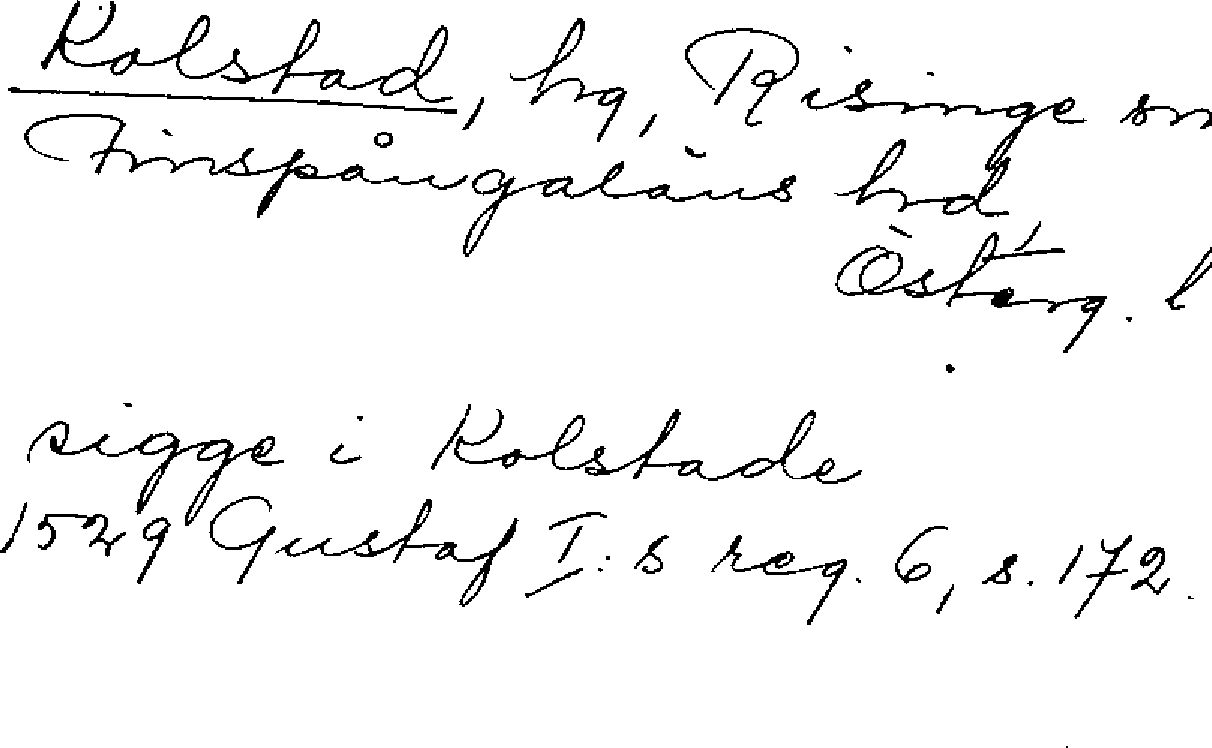 Kolstad, hg, Risinge sn
Finspångaläns hrd,
Österg. l
sigge i Kolstade
1529 Gustaf I:s reg. 6, s. 172.